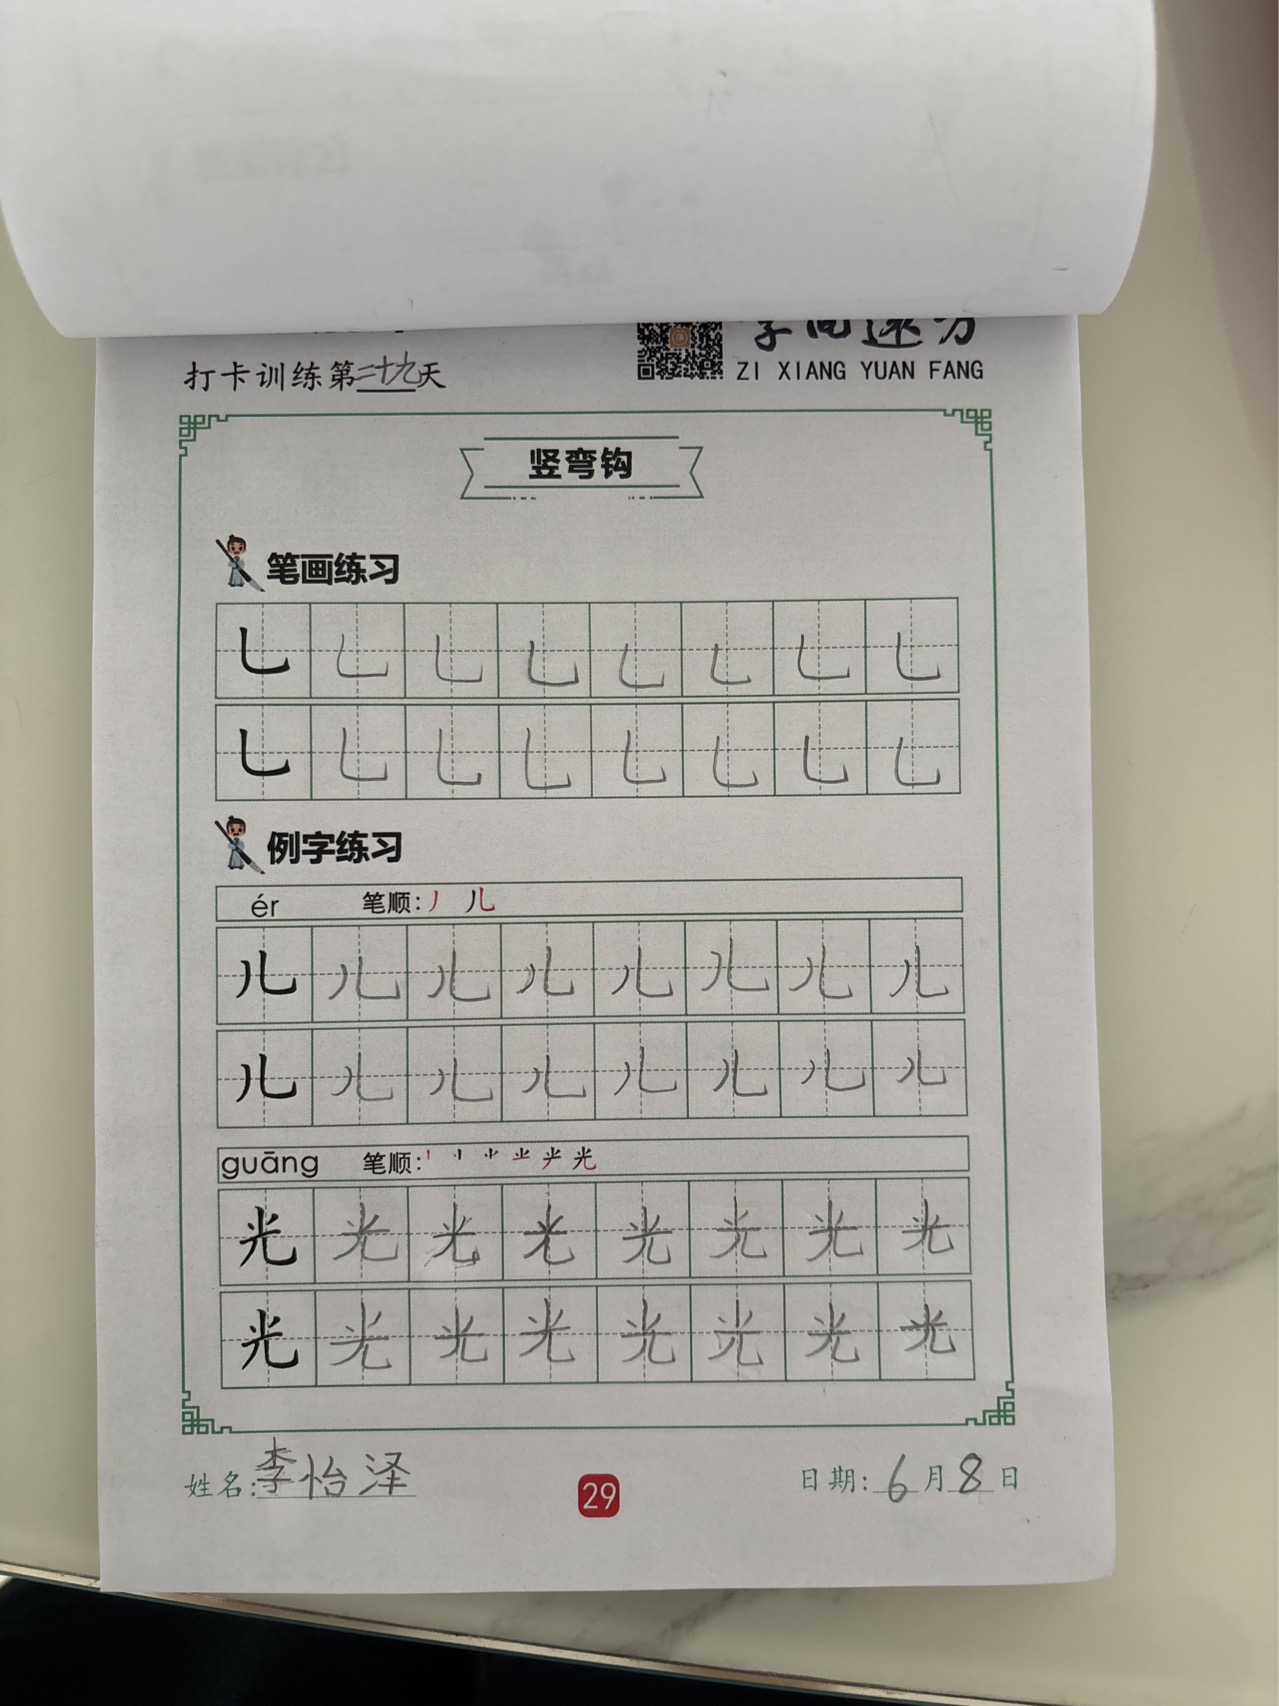 ZI XIANG YUAN FANG
打卡训练第二十九天
竖弯钩
笔画练习
㇄ ㇄ ㇄ ㇄ ㇄ ㇄ ㇄ ㇄
㇄ ㇄ ㇄ ㇄ ㇄ ㇄ ㇄ ㇄
例字练习
ér 笔顺:丿 儿
儿 儿 儿 儿 儿 儿 儿 儿
儿 儿 儿 儿 儿 儿 儿 儿
guāng 笔顺: 光
光 光 光 光 光 光 光 光
光 光 光 光 光 光 光 光
姓名:李怡泽
29
日期:6月8日